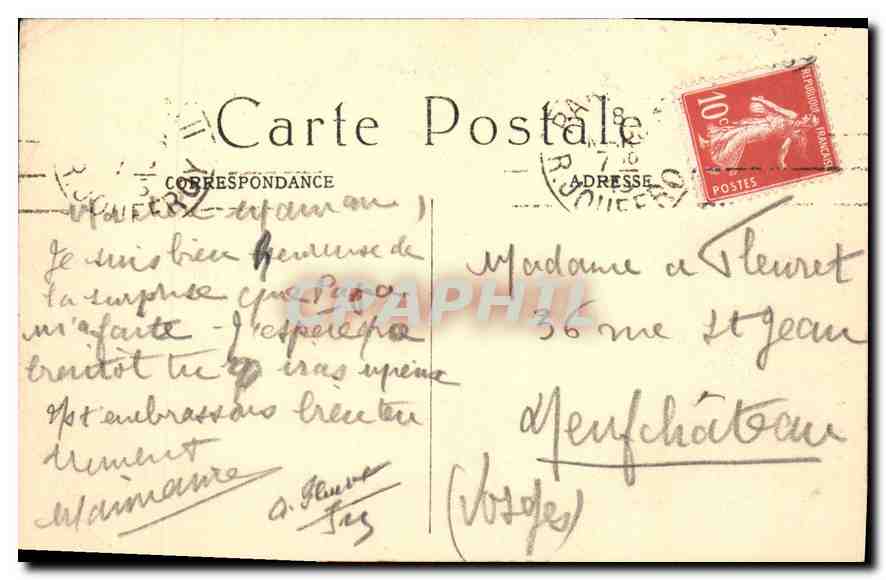 Carte Postale
CORRESPONDANCE
ADRESSE
10c
RÉPUBLIQUE FRANÇAISE
POSTES
R. JOUFFROY
R. JOUFFROY
Maman
Je suis bien heureuse de
la surprise que Papa
m'a faite - J'espère que
bientôt tu iras mieux
embrassons bien ten
drement
a. Fleuret
Madame a Fleuret
36 rue St Jean
Neufchâteau
(Vosges)
CPAPHIL